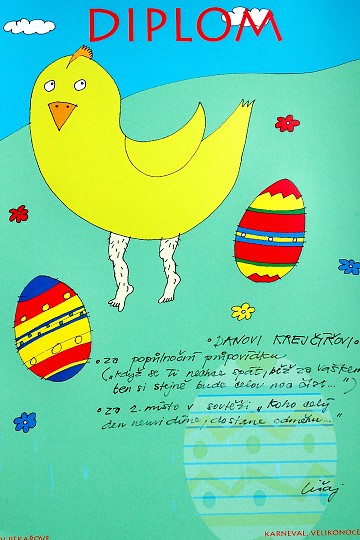 DIPLOM
• DANOVI KREJČÍŘOVI •
• za popůlnoční připovídku
("když se Ti nechce spát, běž za Vaškem
ten si stejně bude celou noc číst..."
• za 2. místo v soutěži "Koho celý
den neuvidíme, dostane odměnu..."
Lišaj
V PEKAŘOVĚ
KARNEVAL, VELIKONOCE